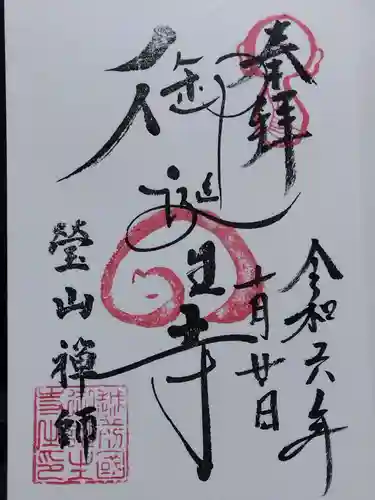 奉拝
令和六年
十月廿日
御誕生寺
瑩山禅師
越前國
御誕生
寺之印